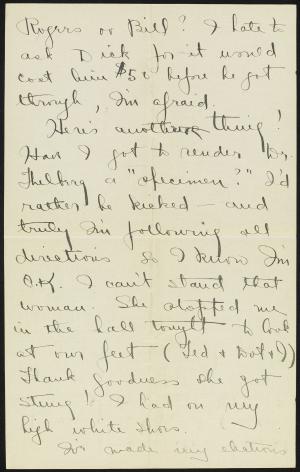 Rogers or Bill? I hate to
ask Dick for it would
cost him $50 before he got
through, I'm afraid.
Here's another thing!
Have I got to render Dr.
Thelberg a "specimen?" I'd
rather be kicked — and
truly I'm following all
directions so I know I'm
O.K. I can't stand that
woman. She stopped me
in the hall tonight to look
at our feet (Ted & Dot & I)
Thank goodness she got
stung! I had on my
high white shoes.
I've made my elections